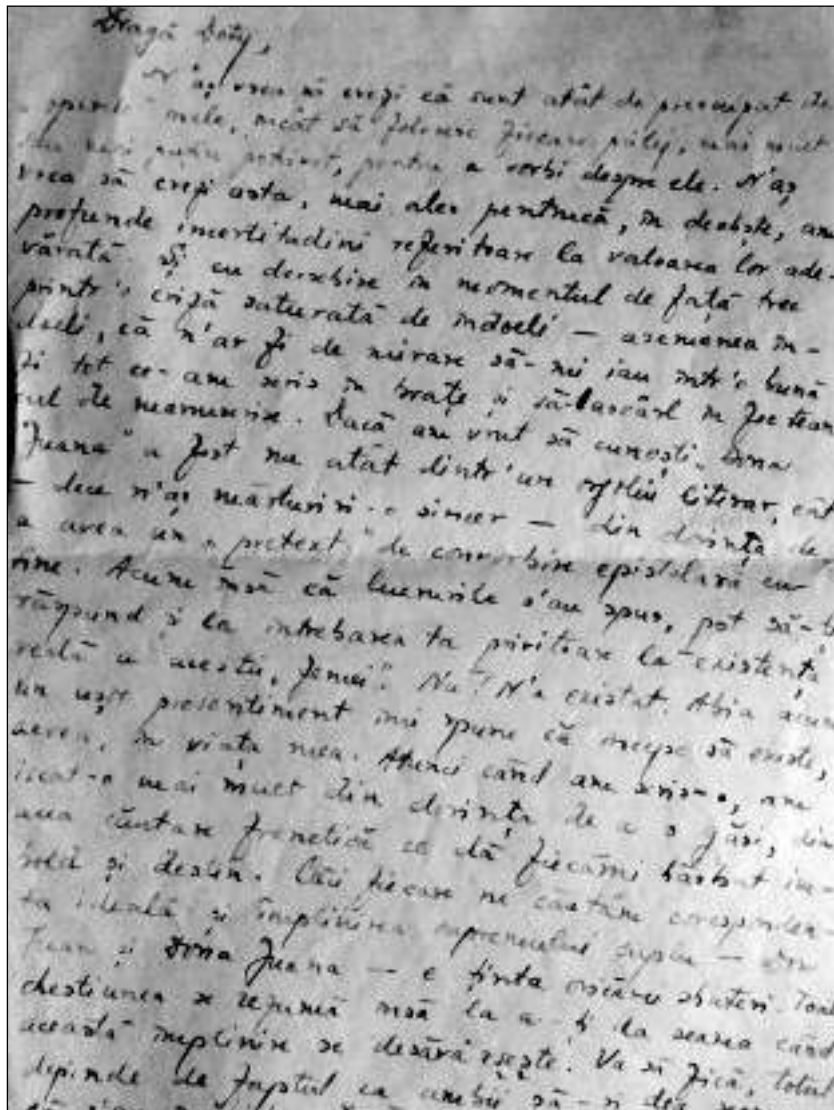 Dragă Doty,
N'aș vrea să crezi că sunt atât de preocupat de
mele, încât să folosesc fiecare prilej, mai mult
sau mai puțin potrivit, pentru a vorbi despre ele. N'aș
vrea să crezi asta, mai ales pentrucă, în deobște, am
profunde incertitudini referitoare la valoarea lor ade-
vărată. Și cu deosebire în momentul de față trec
printr'o criză saturată de îndoeli — asemenea în-
doeli, că n'ar fi de mirare să-mi iau într'o bună
zi tot ce-am scris în brațe și să
de nemurire. Dacă am vrut să cunoști „Dona
Juana" a fost nu atât dintr'un literar, cât
— dece n'aș mărturisi-o sincer — din dorința de
a avea un „pretext" de convorbire epistolară cu
tine. Acum însă că lucrurile s'au spus, pot să-ți
răspund și la întrebarea ta privitoare la existența
reală a acestei „femei". Nu! N'a existat. Abia acum
un presentiment îmi spune că începe să existe,
aevea, în viața mea. Atunci când am scris-o, am
iscat-o mai mult din dorința de a o găsi, din
acea căutare frenetică ce dă fiecărui bărbat im-
bold și destin. Căci fiecare ne căutăm coresponden-
ta ideală și împlinirea supremului — Don
Juan și Dona Juana — e ținta oricărei sbateri. Toată
chestiunea se rezumă însă la a-ți da seama când
această împlinire se desăvârșește. Va să zică, totul
depinde de faptul ca ambii să-și dea